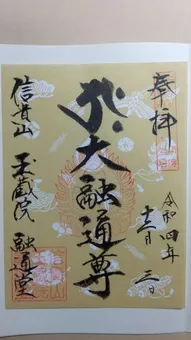 奉拝
令和四年
十二月三日
大融通尊
信貴山
玉蔵院
融通堂